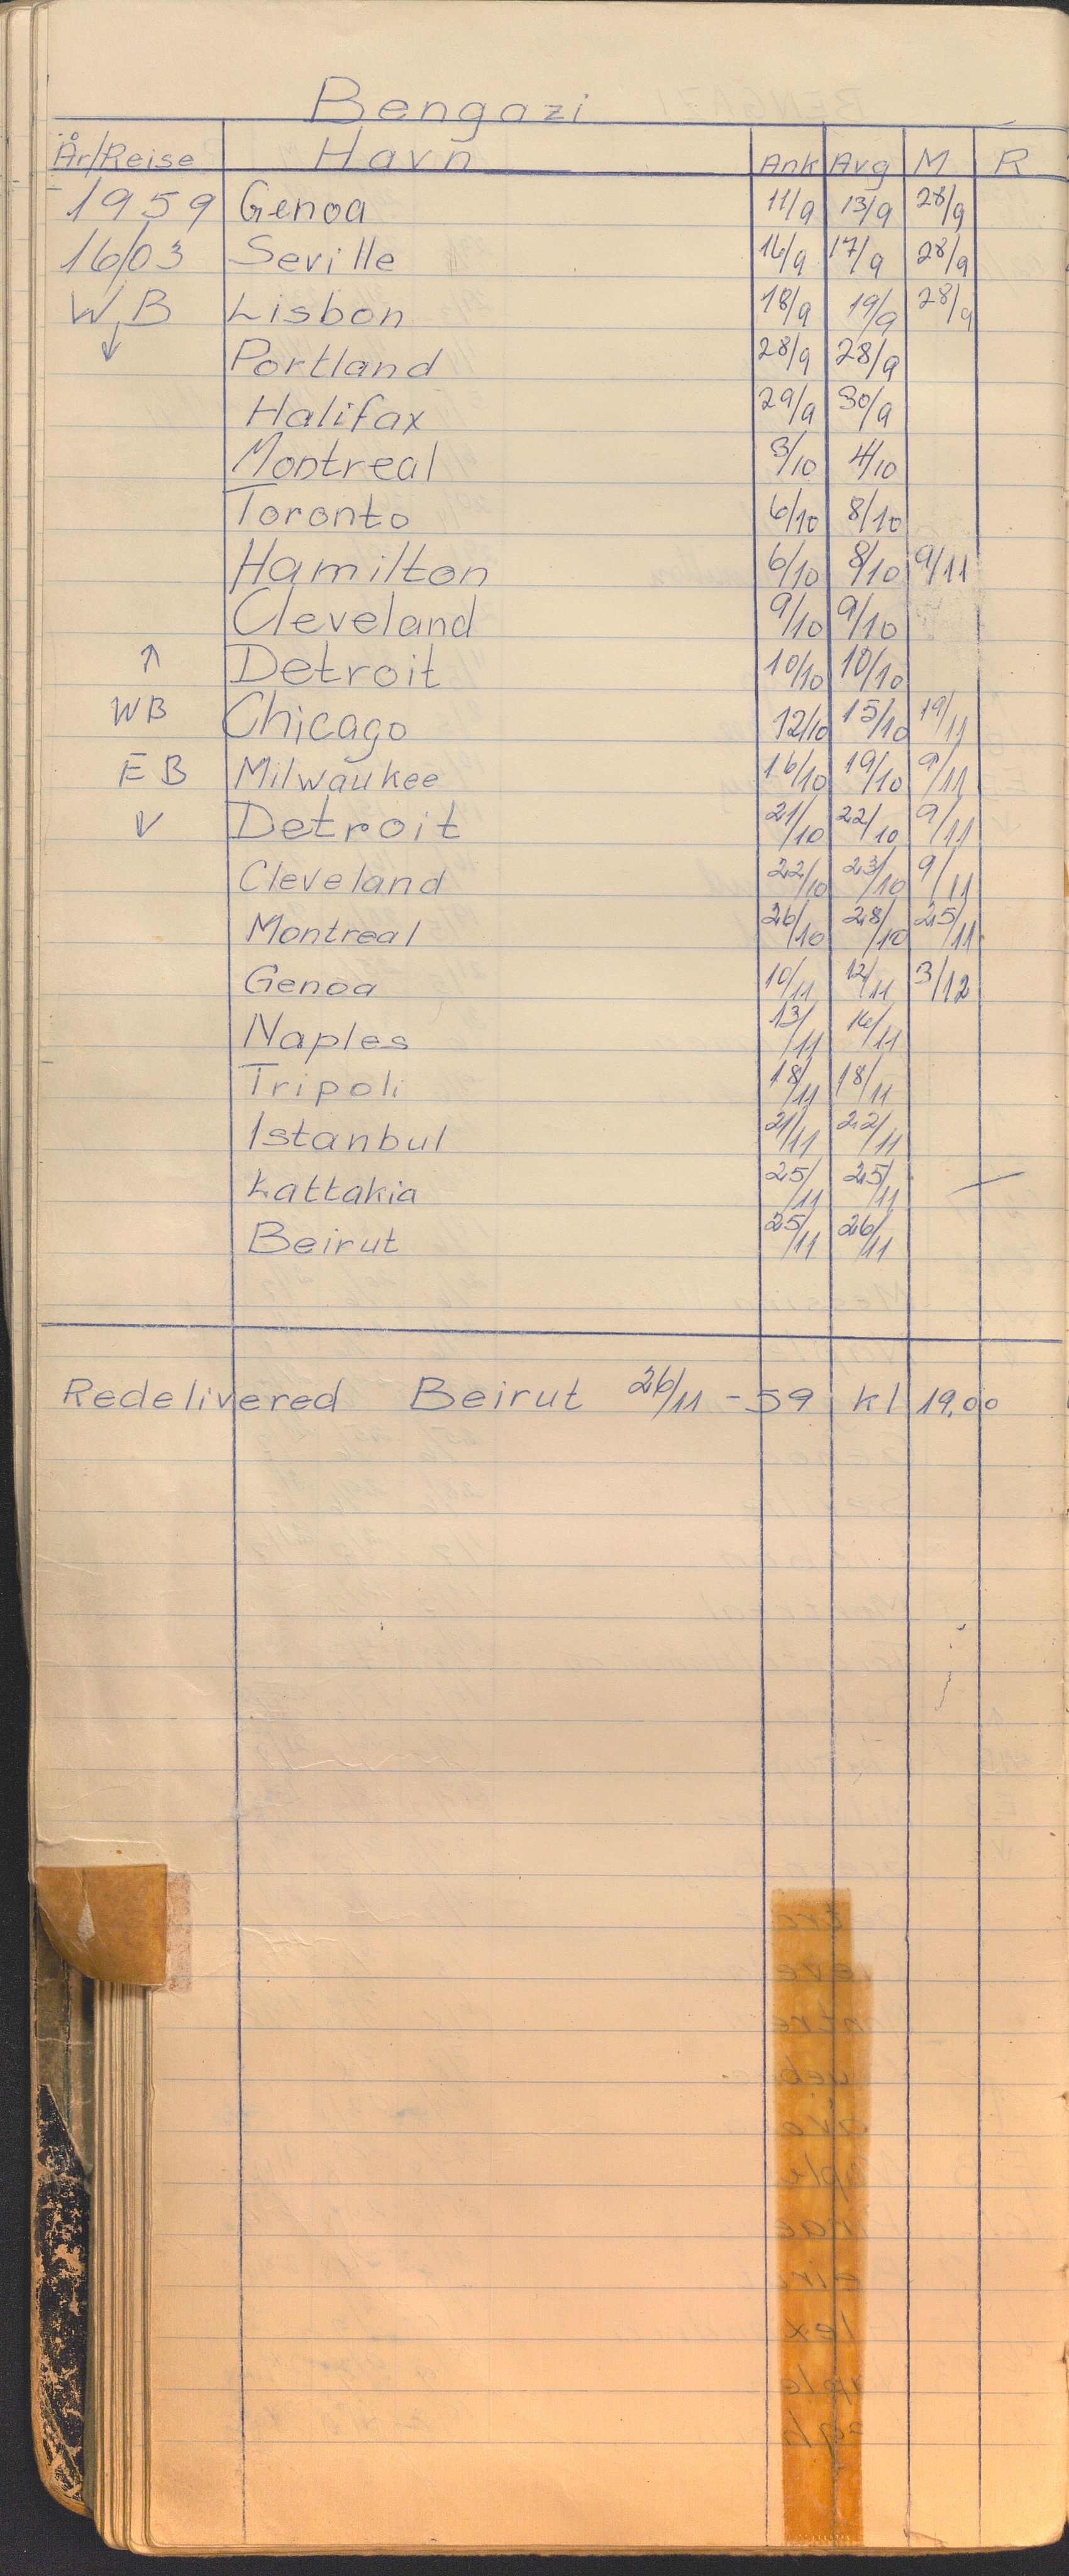 Bengazi
År/Reise Havn Ank Avg M R
1959 Genoa 11/9 13/9 28/9
16/03 Seville 16/9 17/9 28/9
W B Lisbon 18/9 19/9 28/9
↓ Portland 28/9 28/9
Halifax 29/9 30/9
Montreal 3/10 4/10
Toronto 6/10 8/10
Hamilton 6/10 8/10 9/11
Cleveland 9/10 9/10
↑ Detroit 10/10 10/10
WB Chicago 12/10 15/10 19/11
EB Milwaukee 16/10 19/10 9/11
↓ Detroit 21/10 22/10 9/11
Cleveland 22/10 23/10 9/11
Montreal 26/10 28/10 25/11
Genoa 10/11 12/11 3/12
Naples 13/11 16/11
Tripoli 18/11 18/11
Istanbul 21/11 22/11
Lattakia 25/11 25/11
Beirut 25/11 26/11
Redelivered Beirut 26/11 - 59 kl 19.00